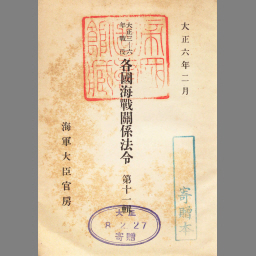 大正六年二月
大正三-六
年戰役
各國海戰關係法令
第十一輯
海軍大臣官房
寄贈本
8.2.27
寄贈